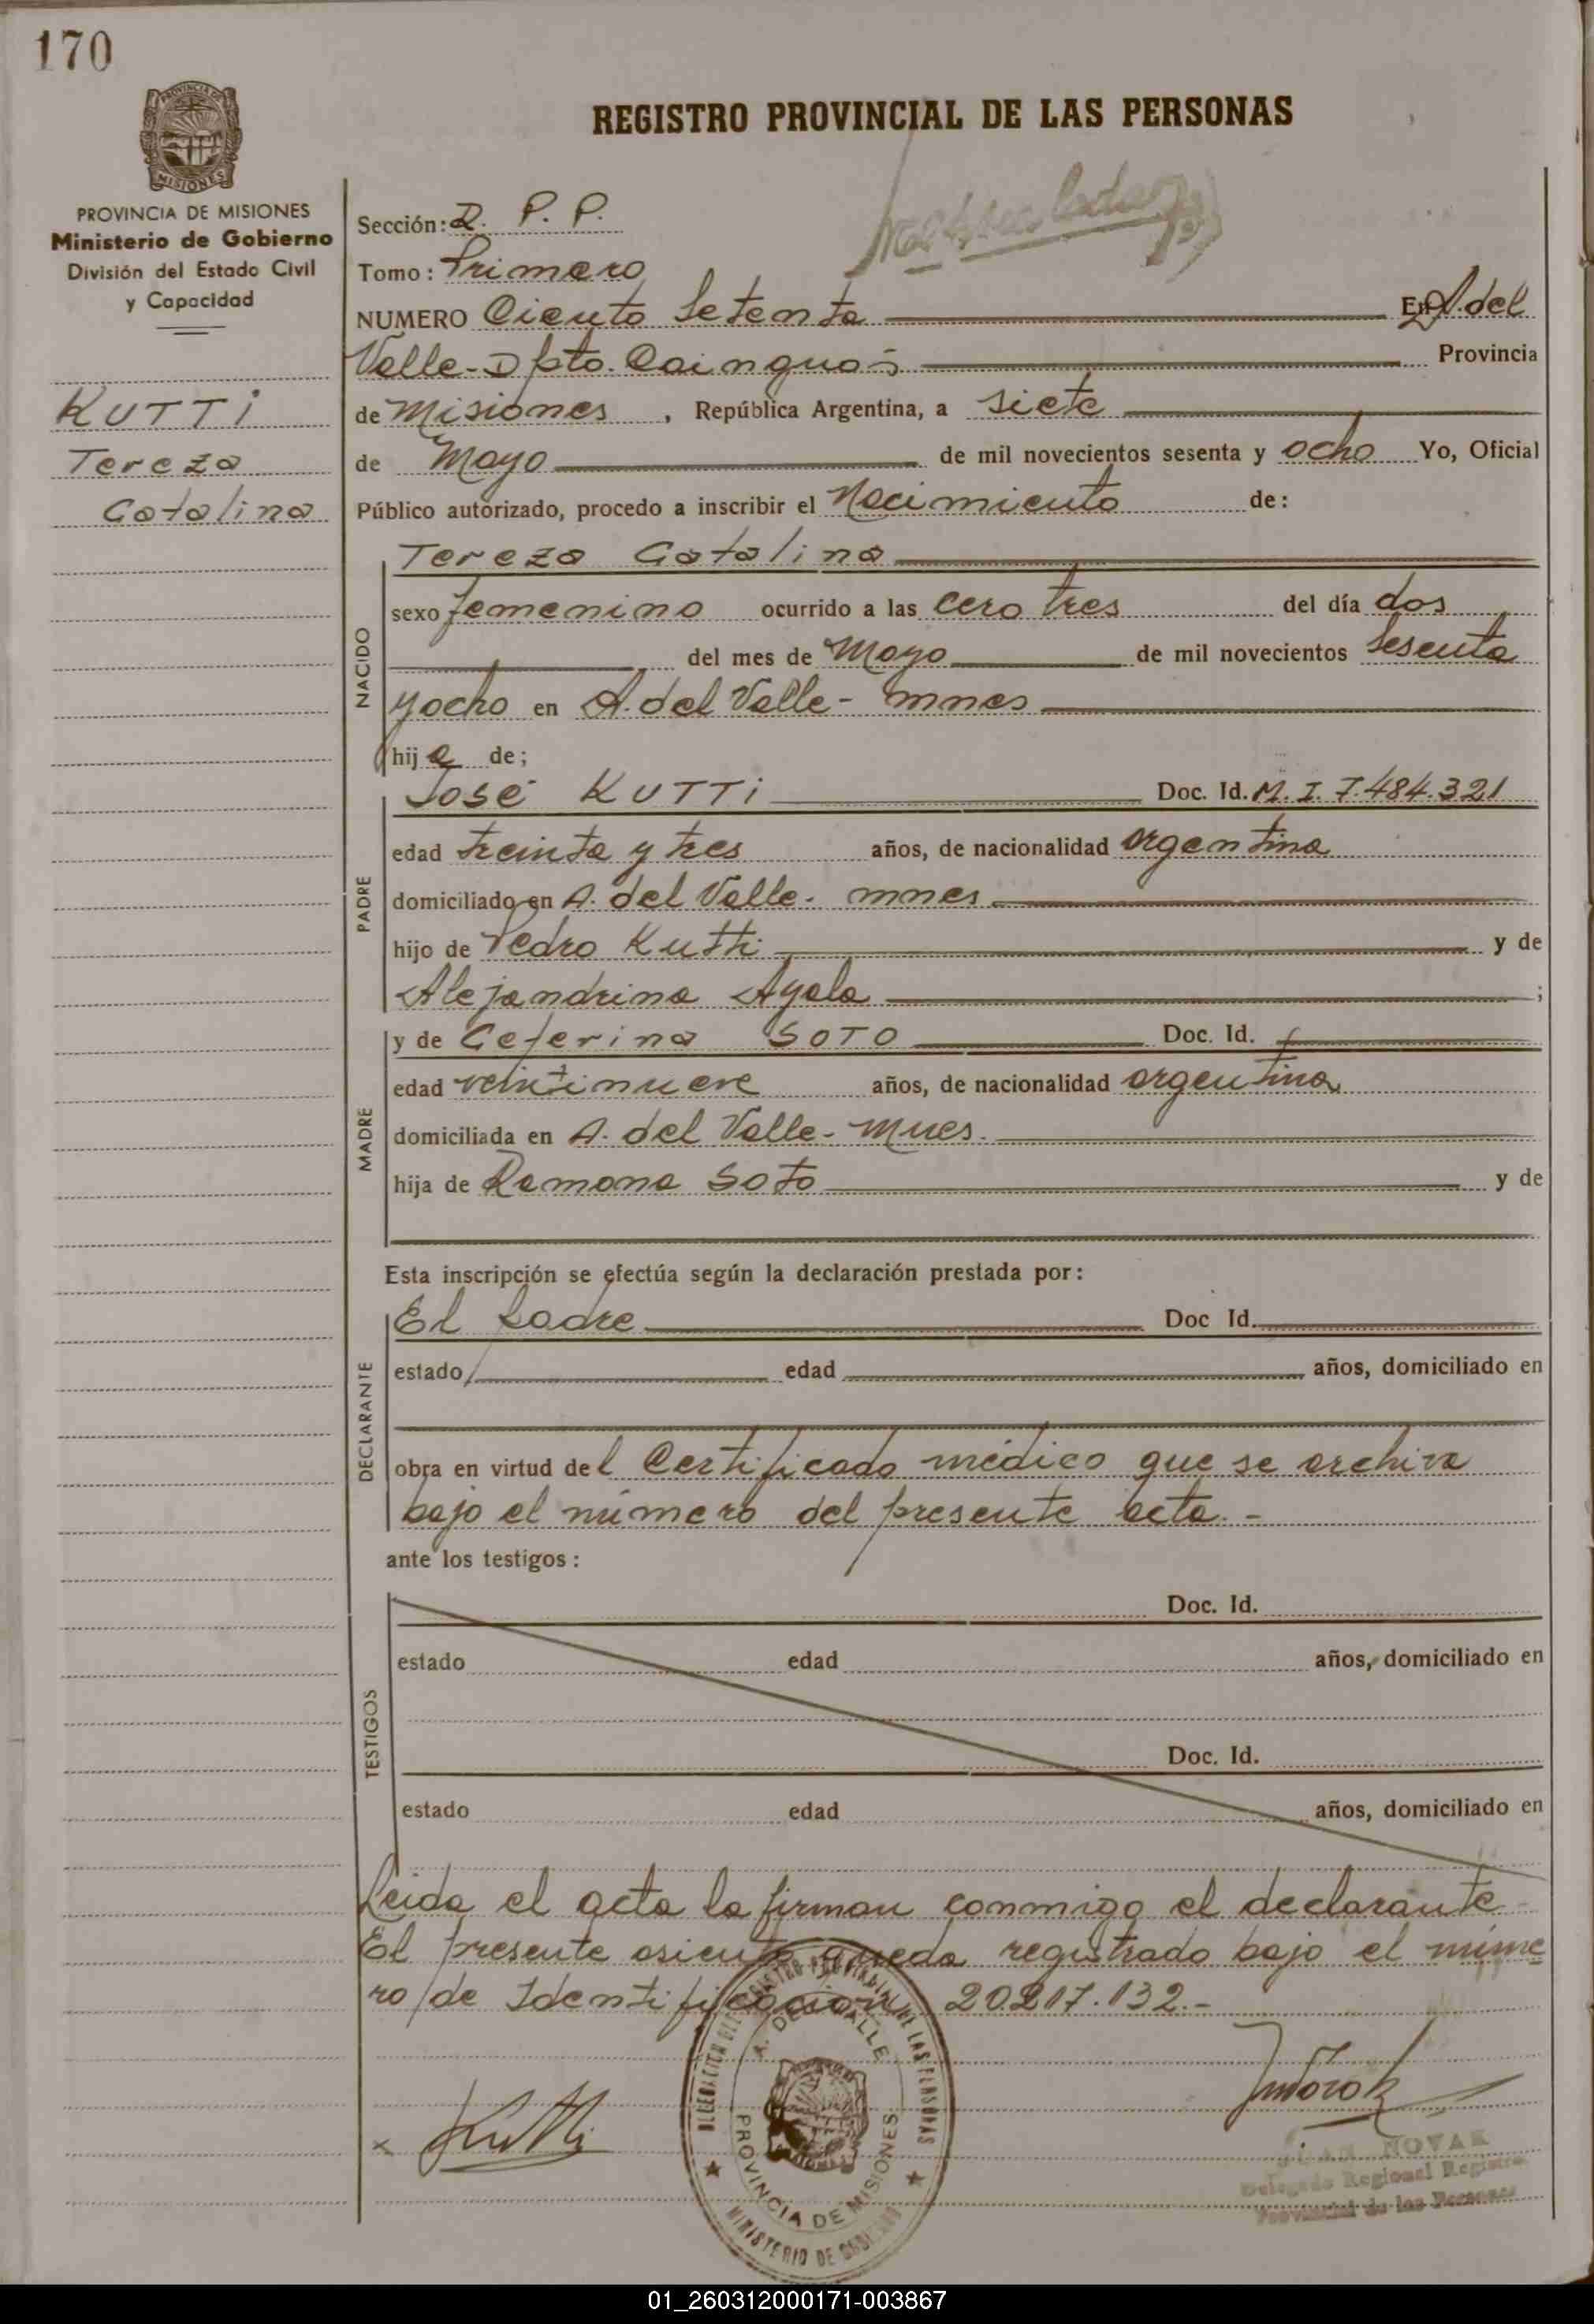 170
REGISTRO PROVINCIAL DE LAS PERSONAS
PROVINCIA DE MISIONES
Ministerio de Gobierno
División del Estado Civil
y Capacidad
KUTTI
Tereza
Catalina
Sección: R. P. P.
Tomo: Primero
NUMERO Ciento Setenta En A. del
Valle - Dpto. Cainguás Provincia
de Misiones, República Argentina, a siete
de Mayo de mil novecientos sesenta y ocho Yo, Oficial
Público autorizado, procedo a inscribir el Nacimiento de:
NACIDO
Tereza Catalina
sexo femenino ocurrido a las cero tres del día dos
del mes de Mayo de mil novecientos Sesenta
y ocho en A. del Valle - Mnes
hija de;
PADRE
José KUTTI Doc. Id. M. I. 7.484.321
edad treinta y tres años, de nacionalidad argentina
domiciliado en A. del Valle - mnes
hijo de Pedro Kutti y de
Alejandrina Ayala ;
MADRE
y de Ceferina SOTO Doc. Id.
edad veintinueve años, de nacionalidad argentina
domiciliada en A. del Valle - Mnes.
hija de Ramona Soto y de
Esta inscripción se efectúa según la declaración prestada por:
DECLARANTE
El Padre Doc Id.
estado edad años, domiciliado en
obra en virtud del Certificado médico que se archiva
bajo el número del presente acta. -
ante los testigos:
TESTIGOS
Doc. Id.
estado edad años, domiciliado en
Doc. Id.
estado edad años, domiciliado en
Leida el acta la firman conmigo el declarante
El presente asiento queda registrado bajo el núme
ro de Identificación 20.217.132.-
REGISTRO PROVINCIAL DE LAS PERSONAS
A. DEL VALLE
PROVINCIA DE MISIONES
MINISTERIO DE GOBIERNO
x Kutti
JUAN NOVAK
Delegado Regional Registro
Provincial de las Personas
01_260312000171-003867